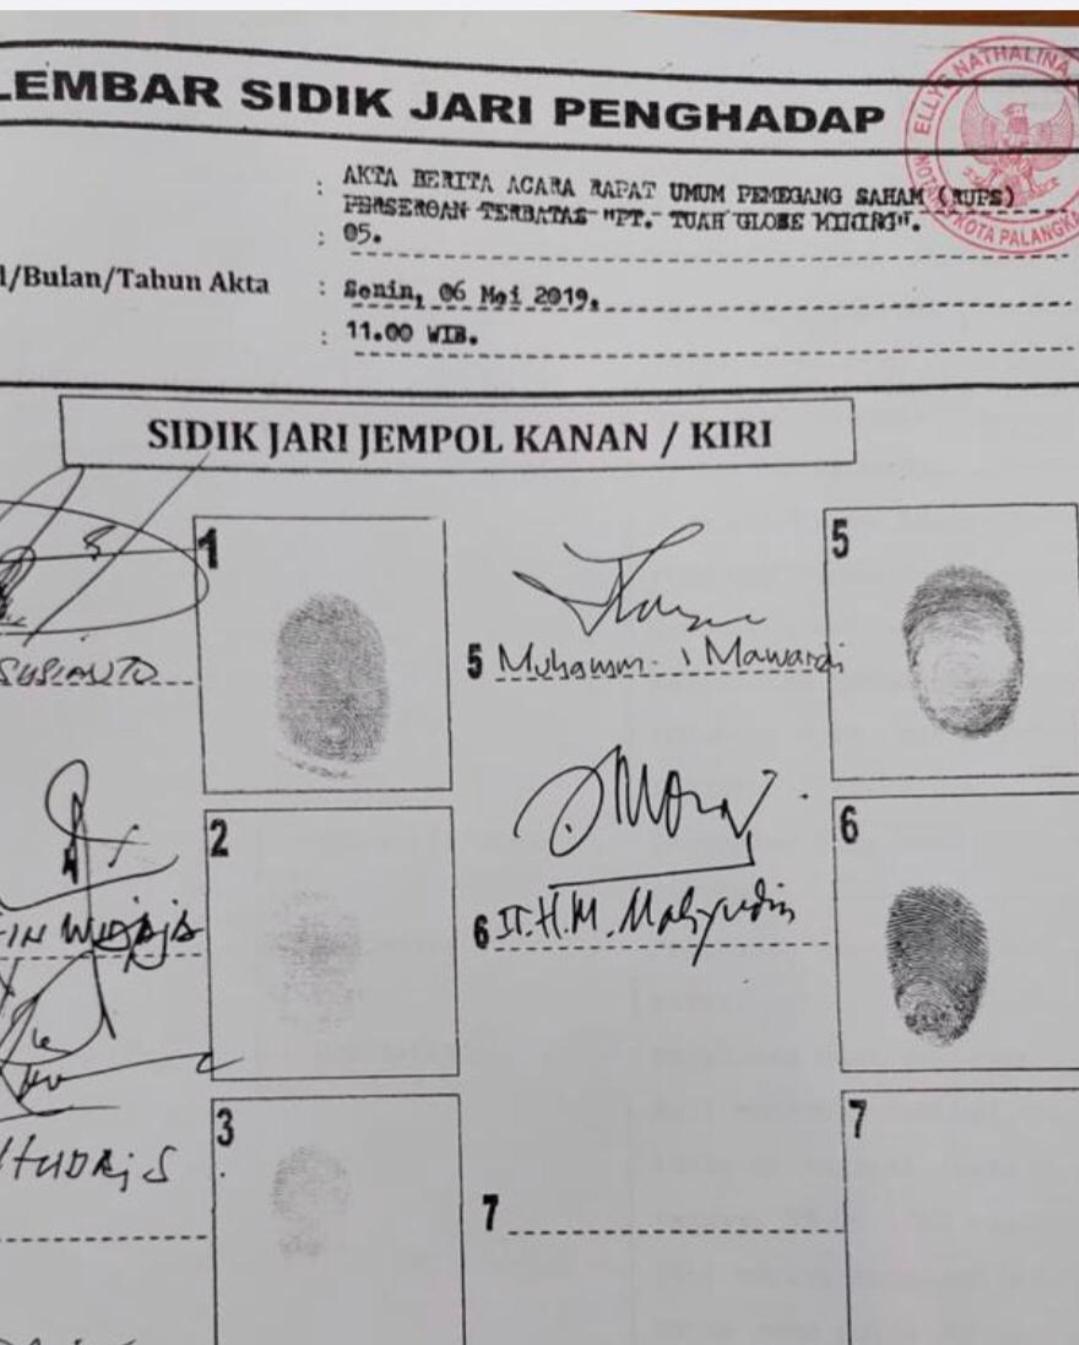 LEMBAR SIDIK JARI PENGHADAP
ELLYS NATHALINA
NOTA
KOTA PALANGKA
: AKTA BERITA ACARA RAPAT UMUM PEMEGANG SAHAM (RUPS)
PERSEROAN TERBATAS "PT. TUAH GLOBE MINING".
: 05.
l/Bulan/Tahun Akta : Senin, 06 Mei 2019.
: 11.00 WIB.
SIDIK JARI JEMPOL KANAN / KIRI
1
5
SUSIANTO
5 Muhamm. Mawardi
2
6
-IN WIDAJA
6 Ir. H.M. Mahyudin
3
7
HUDRI S
7